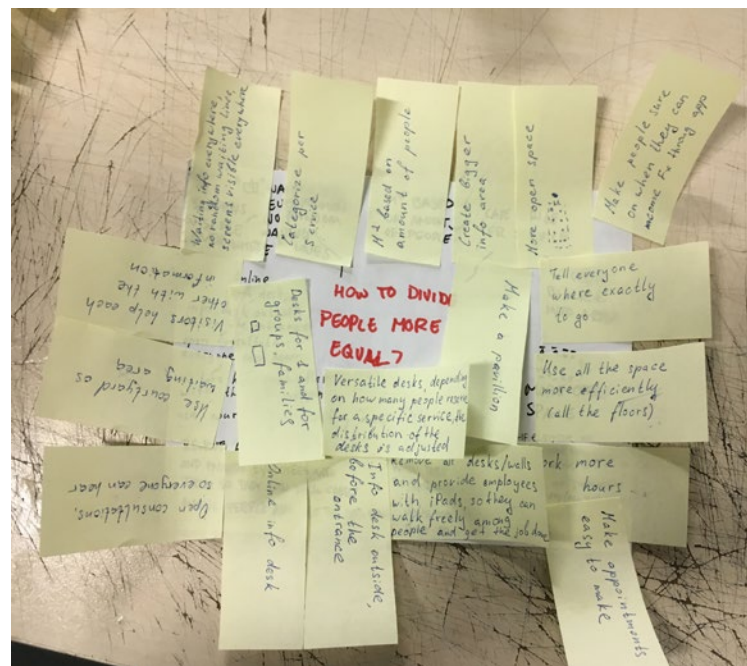 Waiting info everywhere,
no random waiting lines,
screens visible everywhere
Categorize per
service
M2 based on
amount of people
Create bigger
info area
More open space
Make people sure
on when they can
through app
Visitors help each
other with the
information
HOW TO DIVIDE
PEOPLE MORE
EQUAL?
Desks for 1 and for
groups, families
Make a pavillion
Tell everyone
where exactly
to go
Use courtyard as
waiting area
Versatile desks, depending
on how many people
for a specific service, the
distribution of the
desks is adjusted
Use all the space
more efficiently
(all the floors)
Open consultations,
so everyone can hear
Online info desk
Info desk outside,
before the
entrance
Remove all desks/walls
and provide employees
with iPads, so they can
walk freely among
people and get the job done
ork more
hours
Make appointments
easy to make